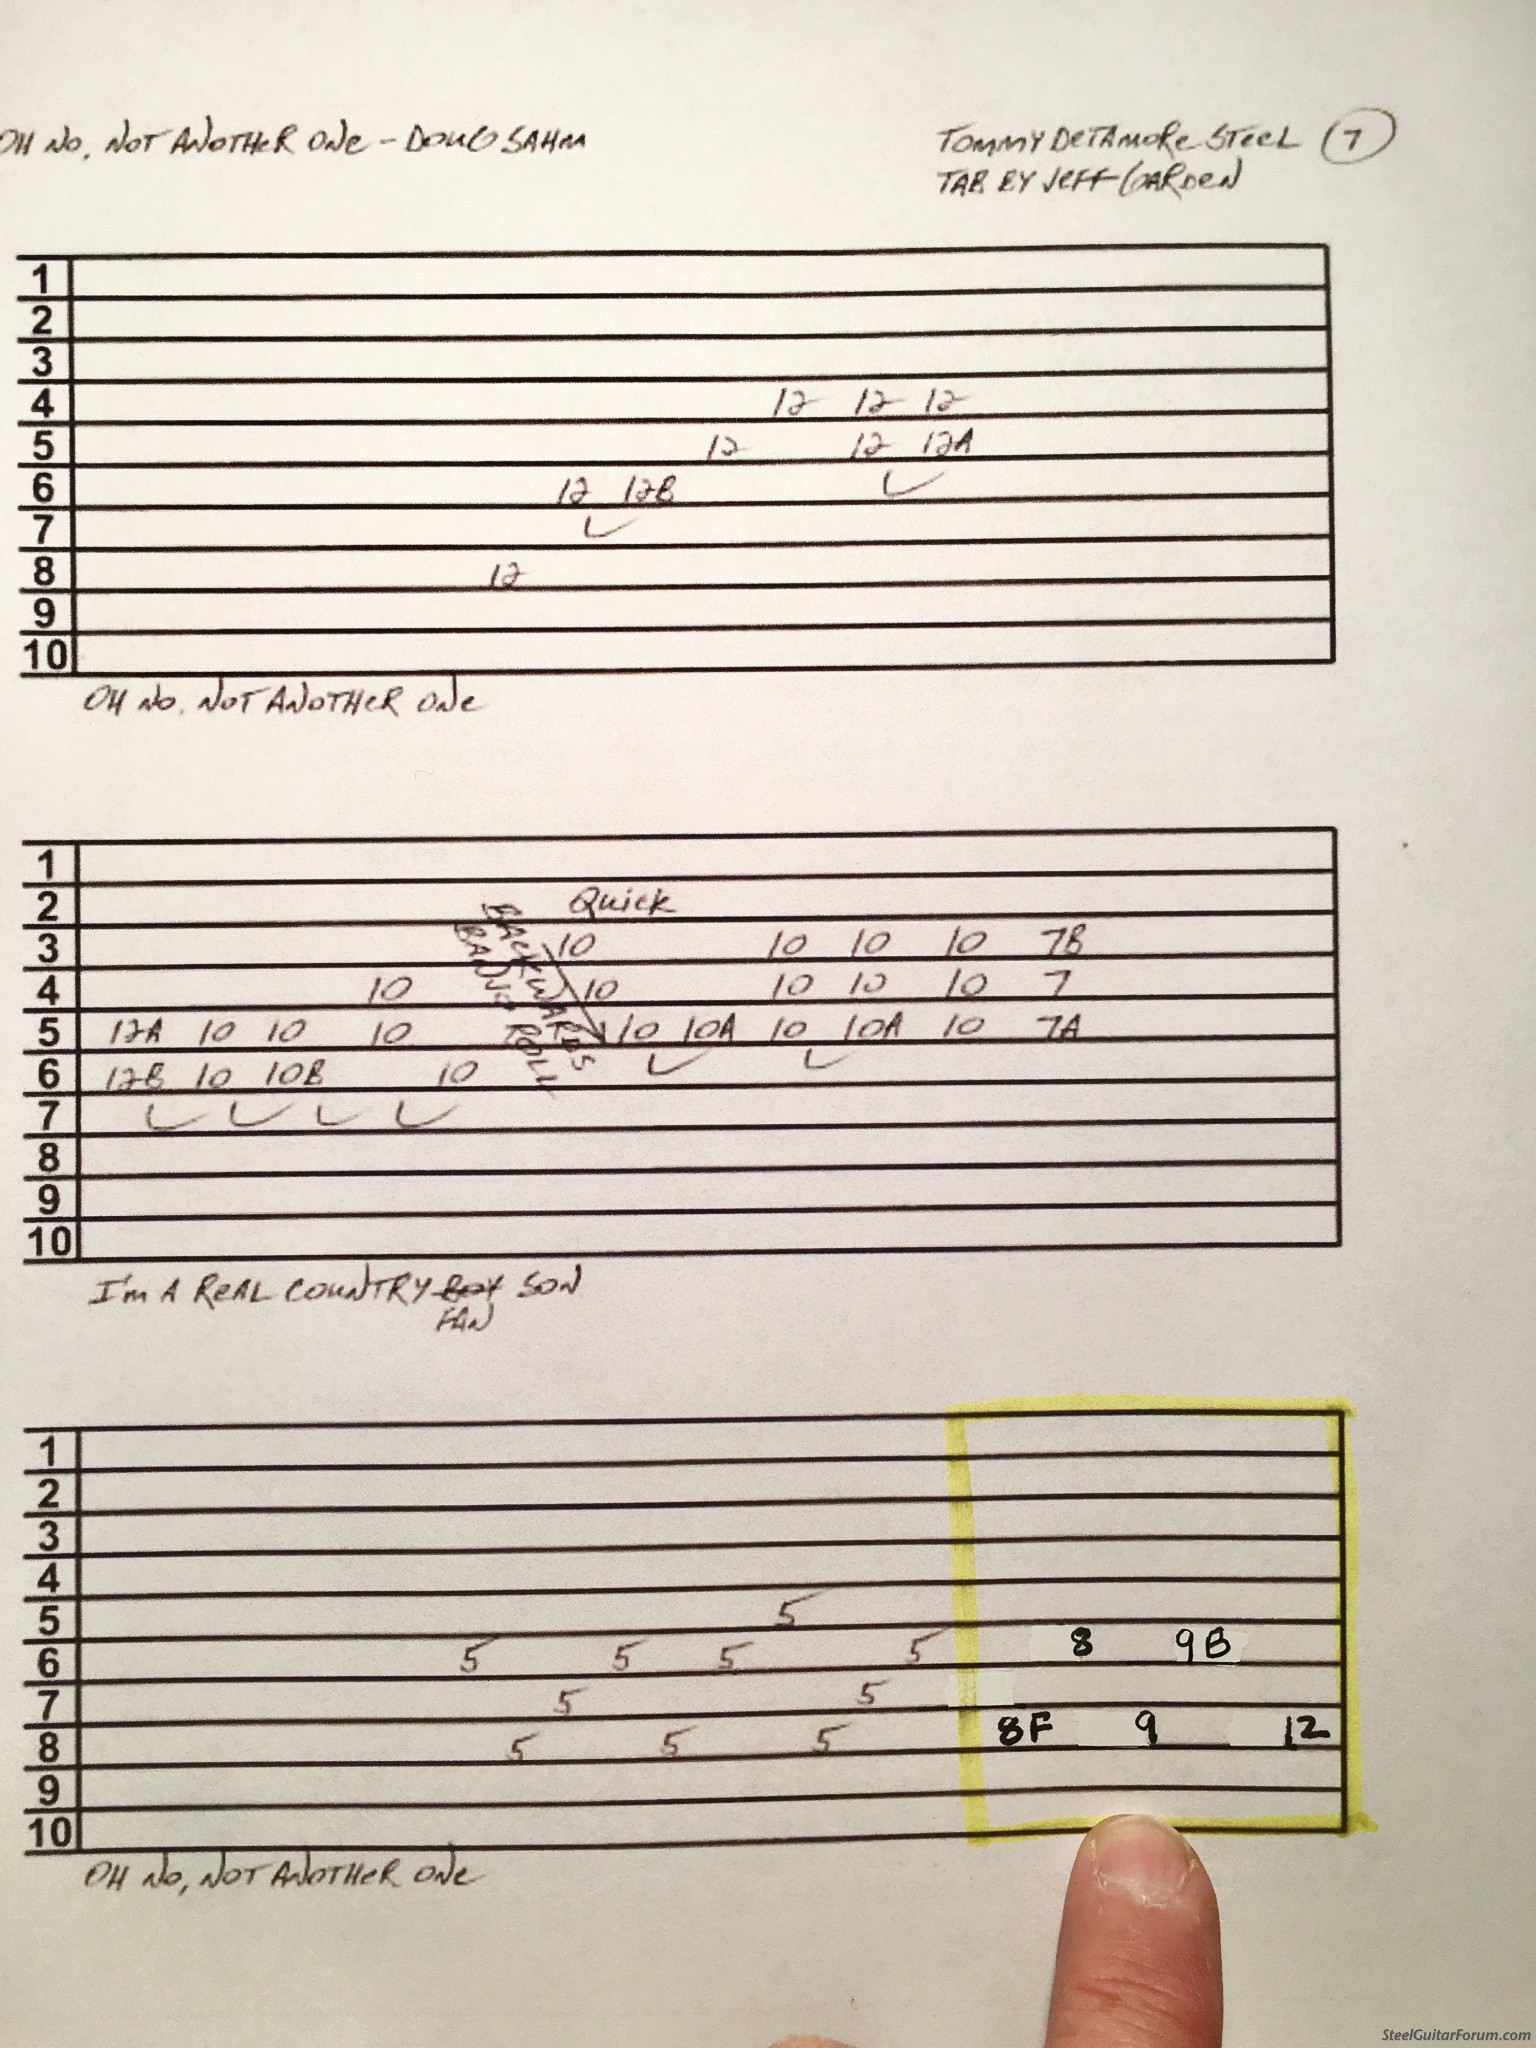 OH NO, NOT ANOTHER ONE - DOUG SAHM
TOMMY DETAMORE STEEL 7
TAB BY JEFF GARDEN
1
2
3
4 12 12 12
5 12 12 12A
6 12 12B
7
8 12
9
10
OH NO, NOT ANOTHER ONE
1
2 Quick
BACKWARDS
BANJO ROLL
3 10 10 10 10 7B
4 10 10 10 10 10 7
5 12A 10 10 10 10 10A 10 10A 10 7A
6 12B 10 10B 10
7
8
9
10
I'm A REAL COUNTRY BOY SON
FAN
1
2
3
4
5 5
6 5 5 5 5 8 9B
7 5 5
8 5 5 5 8F 9 12
9
10
OH NO, NOT ANOTHER ONE
SteelGuitarForum.com